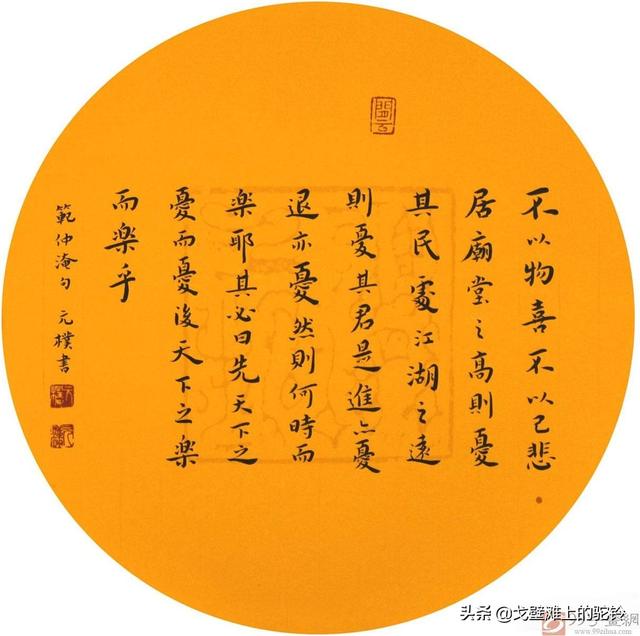 不以物喜不以己悲
居廟堂之高則憂
其民處江湖之遠
則憂其君是進亦憂
退亦憂然則何時而
楽耶其必曰先天下之
憂而憂後天下之楽
而楽乎
範仲淹句 元樸書
头条 @戈壁滩上的驼铃
www.99zihua.com